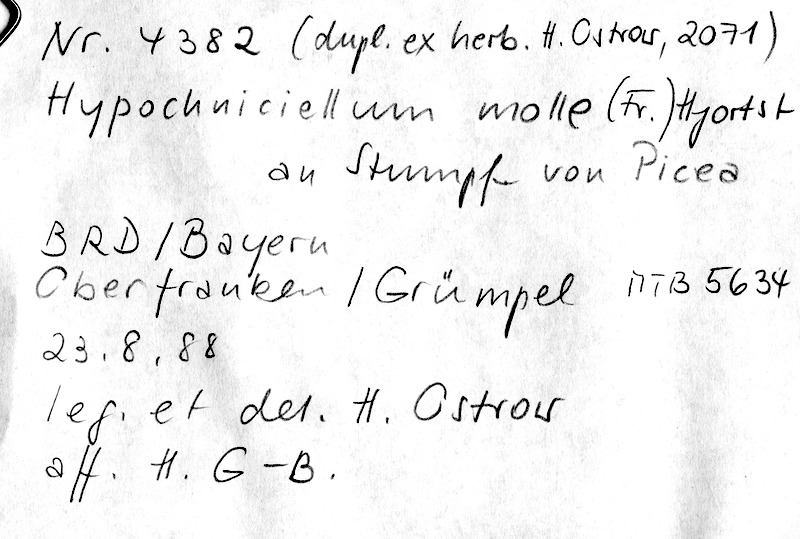 Nr. 4382 (dupl. ex herb. H. Ostrow, 2071)
Hypochniciellum molle (Fr.) Hjortst
an Stumpf von Picea
BRD / Bayern
Oberfranken / Grümpel MTB 5634
23.8.88
leg. et det. H. Ostrow
aff. H. G-B.